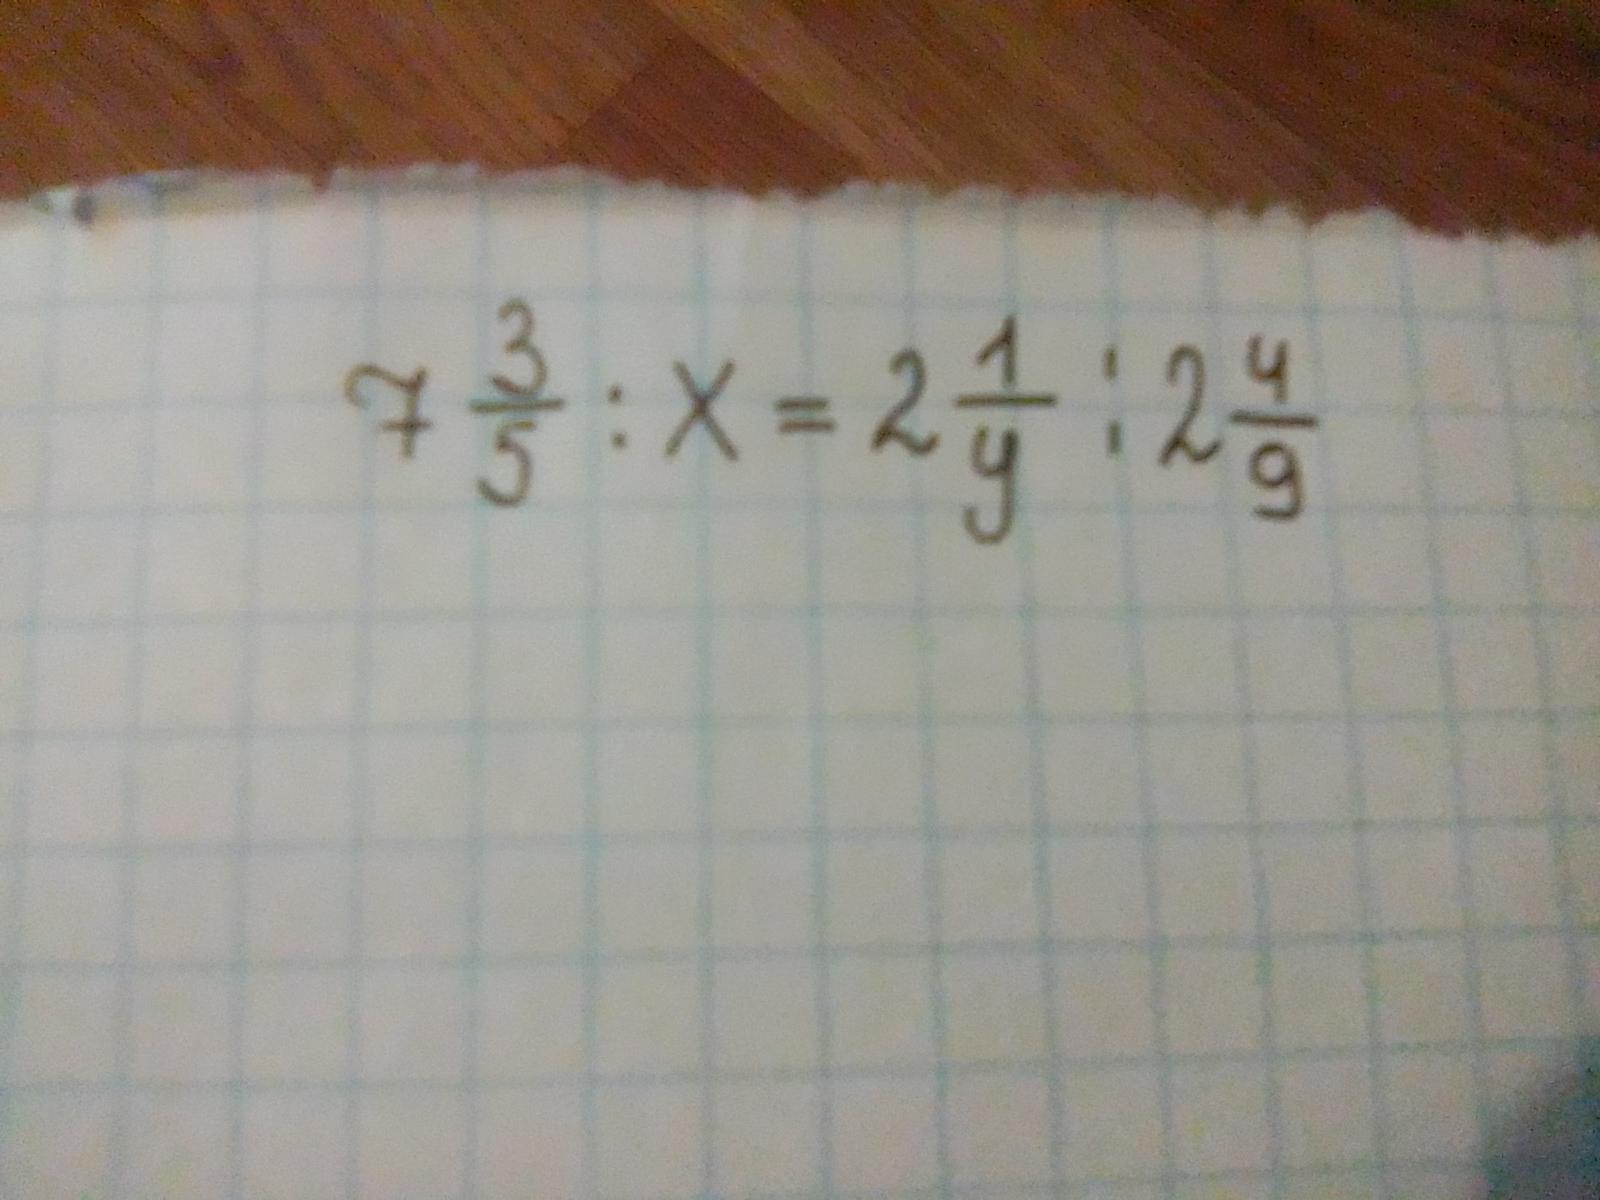 7 3/5 : x = 2 1/4 : 2 4/9